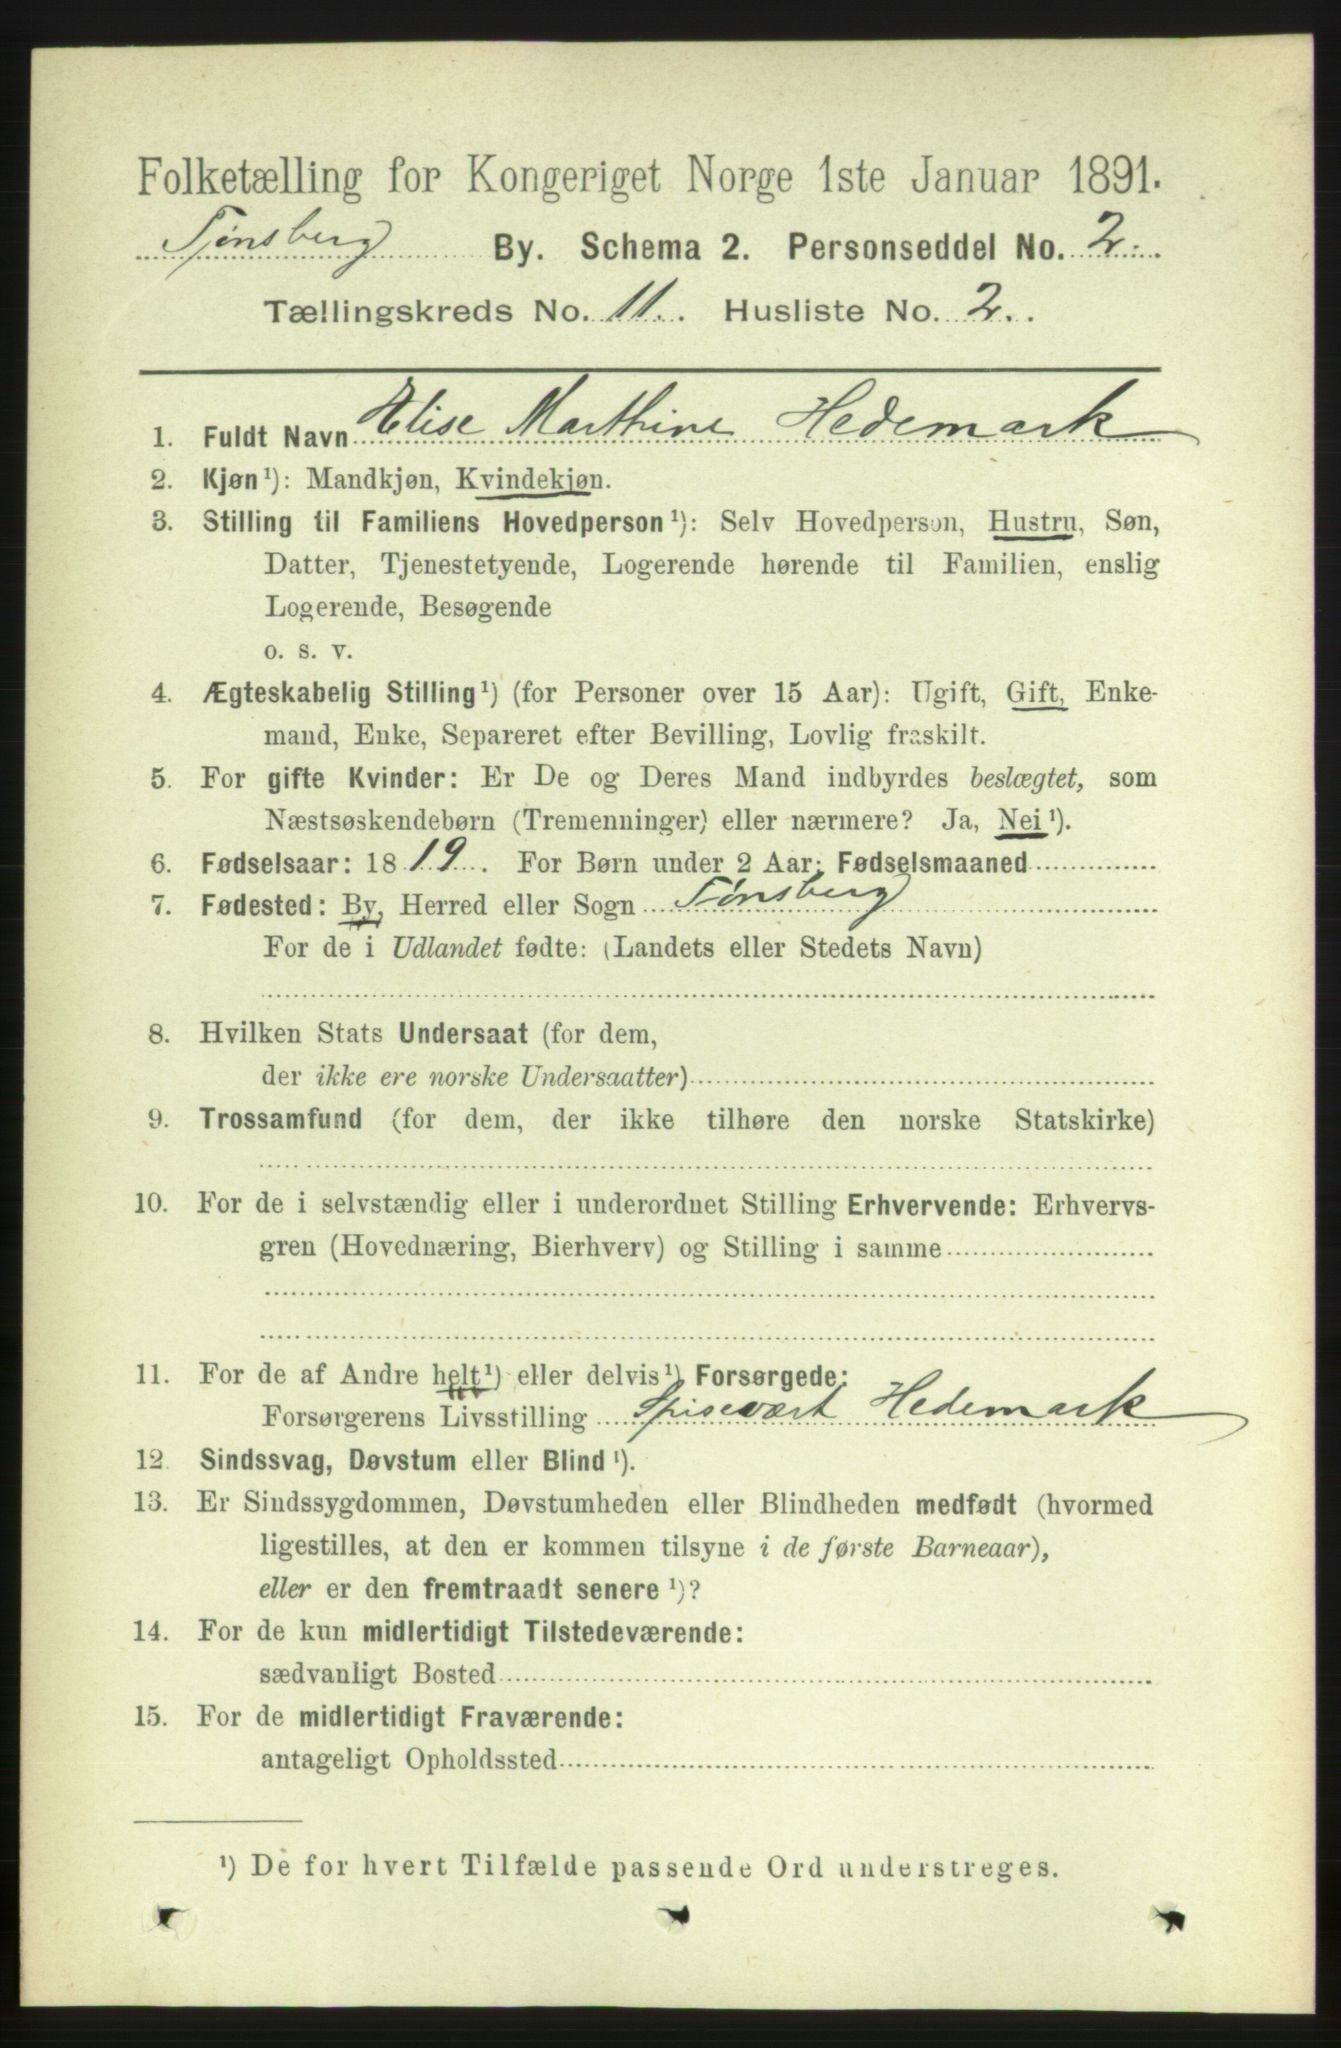 Folketælling for Kongeriget Norge 1ste Januar 1891.
Tønsberg By. Schema 2. Personseddel No. 2.
Tællingskreds No. 11. Husliste No. 2.
1. Fuldt Navn Elise Marthine Hedemark
2. Kjøn¹): Mandkjøn, Kvindekjøn.
3. Stilling til Familiens Hovedperson¹): Selv Hovedperson, Hustru, Søn,
Datter, Tjenestetyende, Logerende hørende til Familien, enslig
Logerende, Besøgende
o. s. v.
4. Ægteskabelig Stilling¹) (for Personer over 15 Aar): Ugift, Gift, Enke-
mand, Enke, Separeret efter Bevilling, Lovlig fraskilt.
5. For gifte Kvinder: Er De og Deres Mand indbyrdes beslægtet, som
Næstsøskendebørn (Tremenninger) eller nærmere? Ja, Nei¹).
6. Fødselsaar: 1819. For Børn under 2 Aar: Fødselsmaaned
7. Fødested: By, Herred eller Sogn Tønsberg
For de i Udlandet fødte: (Landets eller Stedets Navn)
8. Hvilken Stats Undersaat (for dem,
der ikke ere norske Undersaatter)
9. Trossamfund (for dem, der ikke tilhøre den norske Statskirke)
10. For de i selvstændig eller i underordnet Stilling Erhvervende: Erhvervs-
gren (Hovednæring, Bierhverv) og Stilling i samme
11. For de af Andre helt¹) eller delvis¹) Forsørgede:
Forsørgerens Livsstilling Spisevært Hedemark
12. Sindssvag, Døvstum eller Blind¹).
13. Er Sindssygdommen, Døvstumheden eller Blindheden medfødt (hvormed
ligestilles, at den er kommen tilsyne i de første Barneaar),
eller er den fremtraadt senere¹)?
14. For de kun midlertidigt Tilstedeværende:
sædvanligt Bosted
15. For de midlertidigt Fraværende:
antageligt Opholdssted
¹) De for hvert Tilfælde passende Ord understreges.